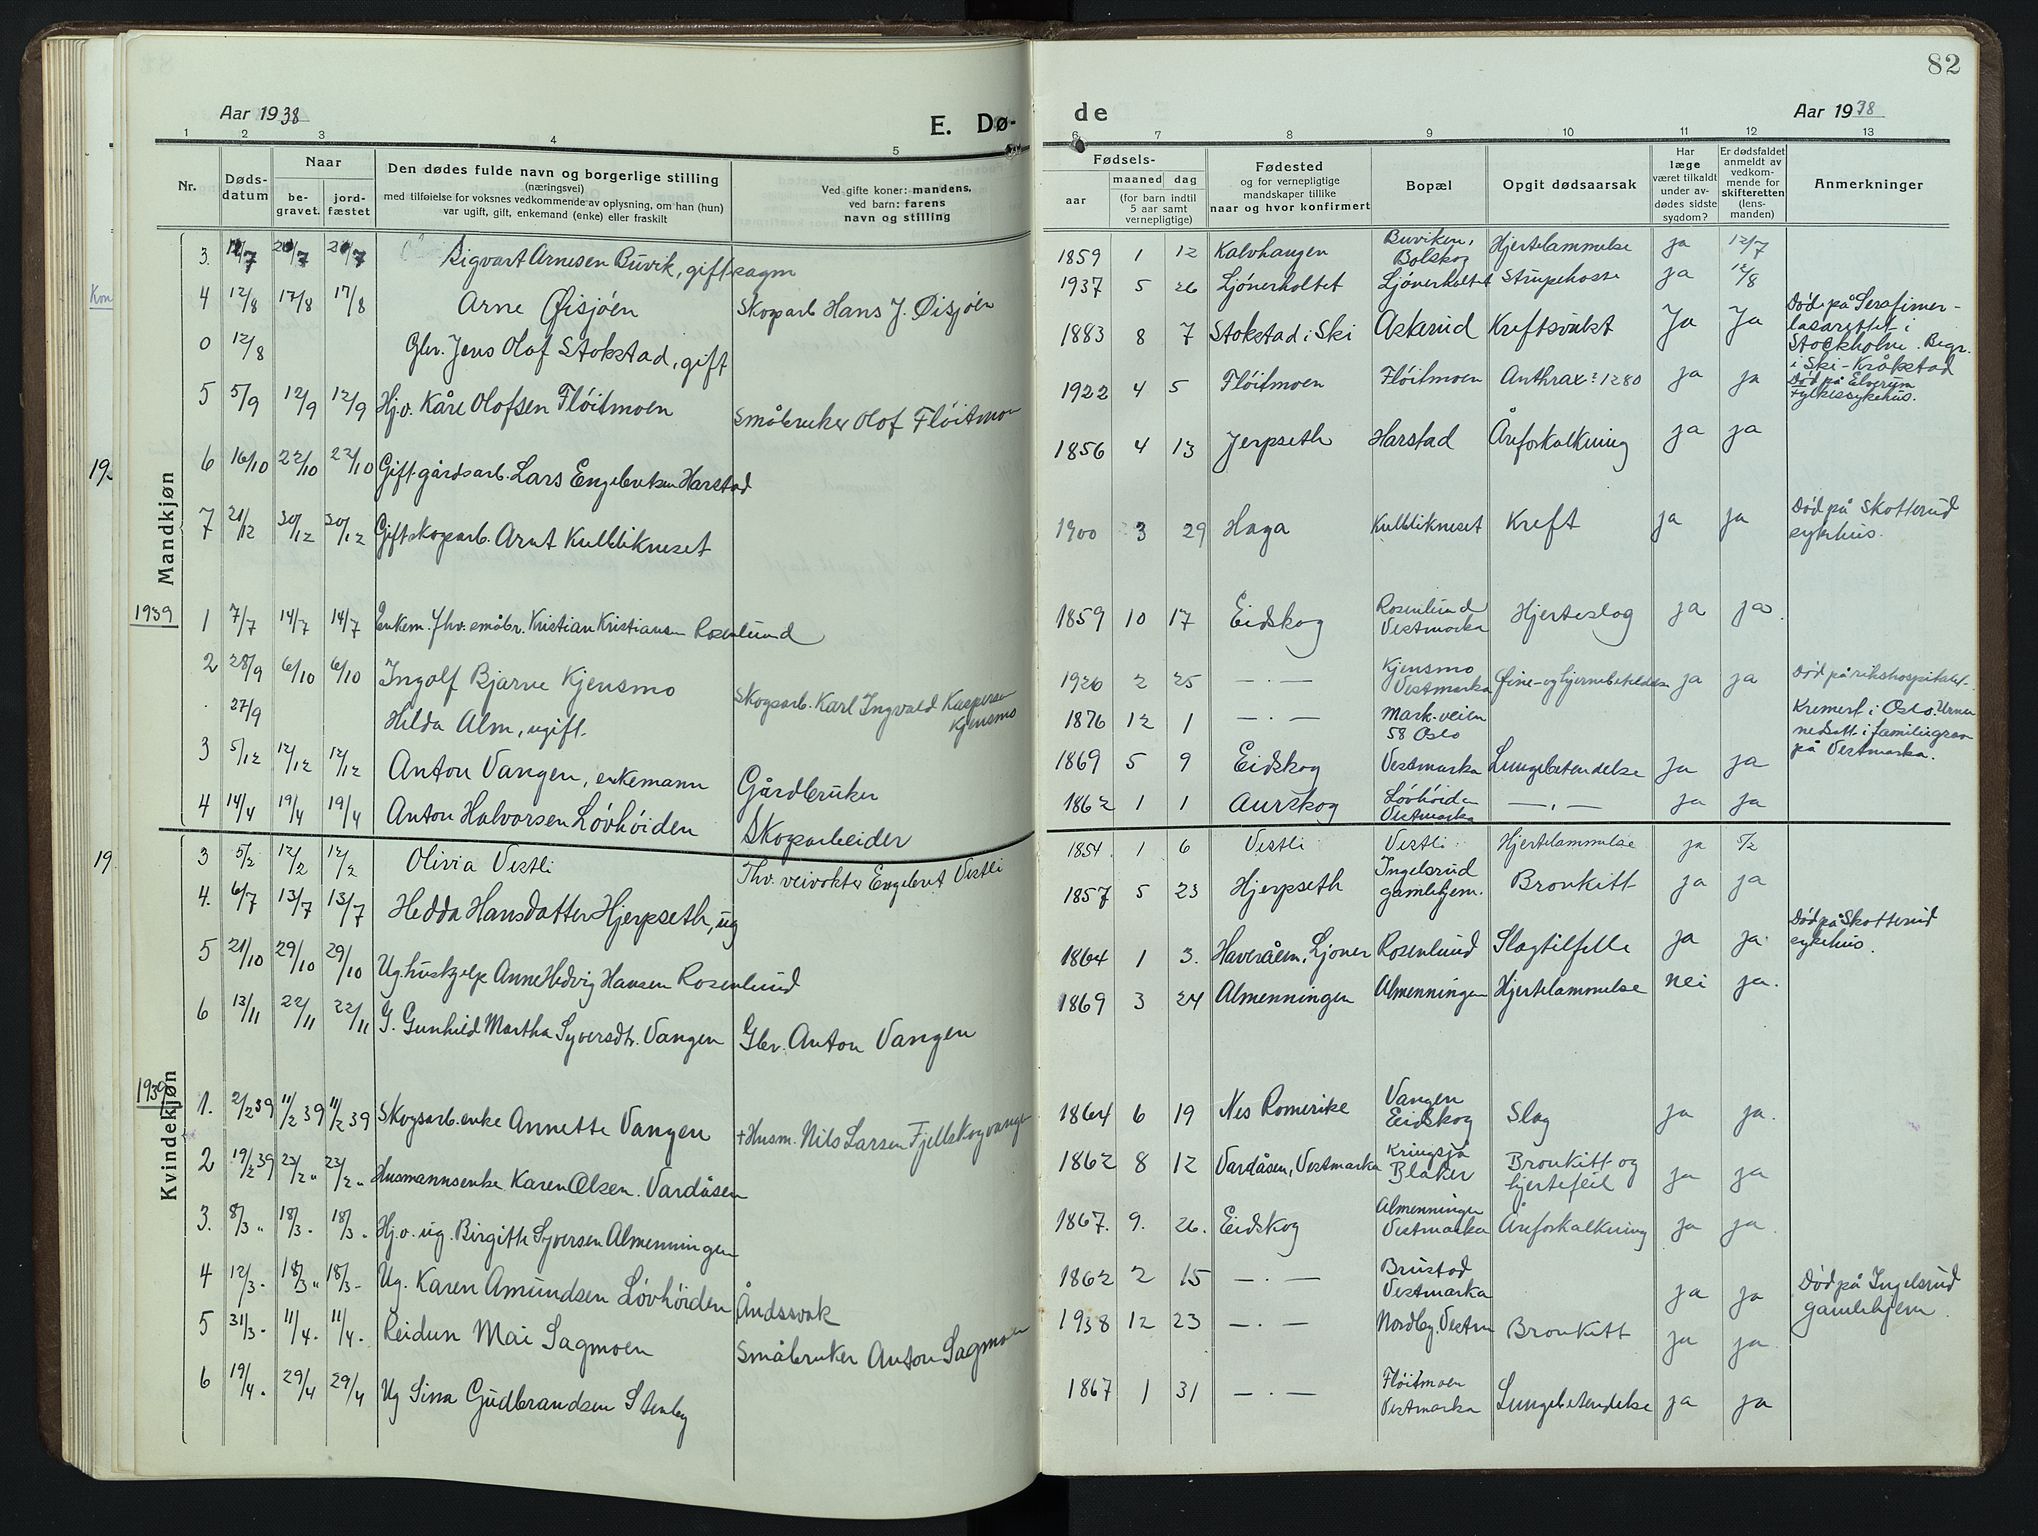 82
Aar 1938
E. Dø-
de
Aar 1938
1 2 3 4 5 6 7 8 9 10 11 12 13
Nr.
Døds-
datum
Naar
be-
gravet.
jord-
fæstet
Den dødes fulde navn og borgerlige stilling
(næringsvei)
med tilføielse for voksnes vedkommende av oplysning, om han (hun)
var ugift, gift, enkemand (enke) eller fraskilt
Ved gifte koner: mandens,
ved barn: farens
navn og stilling
Fødsels-
aar
maaned
dag
(for barn indtil
5 aar samt
vernepligtige)
Fødested
og for vernepligtige
mandskaper tillike
naar og hvor konfirmert
Bopæl
Opgit dødsaarsak
Har
læge
været tilkaldt
under av-
dødes sidste
sygdom?
Er dødsfaldet
anmeldt av
vedkom-
mende for
skifteretten
(lens-
manden)
Anmerkninger
Mandkjøn
3. 12/7 20/7 20/7 Sigvart Arnesen Buvik, gift sagm 1859 1 12 Kalvhaugen Buviken, Bolskog Hjertelammelse ja 12/7
4 12/8 17/8 17/8 Arne Øisjøen Skogarb Hans J. Øisjøen 1937 5 26 Ljønerholtet Ljønerholtet Strupehoste ja 12/8
0 12/8 Gbr. Jens Olaf Stokstad, gift 1883 8 7 Stokstad i Ski Asterud Kreftsvulst Ja Ja Død på Serafimer-
lasarettet i
Stockholm. Begr.
i Ski-Kråkstad
5 5/9 12/9 12/9 Hj.o. Kåre Olofsen Fløitmoen Småbruker Olof Fløitmoen 1922 4 5 Fløitmoen Fløitmoen Anthrax? 1280 ja ja Død på Elverum
fylkessykehus.
6 16/10 22/10 22/10 Gift gårdsarb. Lars Engebretsen Harstad 1856 4 13 Jerpseth Harstad Åreforkalkning ja ja
7 21/12 30/12 30/12 Gift skogarb. Arnt Kulblikneset 1900 3 29 Haga Kulblikneset Kreft ja ja Død på Skotterud
sykehus.
1939
1 7/7 14/7 14/7 Enkem. fhv. småbr. Kristian Kristiansen Rosenlund 1859 10 17 Eidskog Rosenlund Vestmarka Hjerteslag ja ja.
2 28/9 6/10 6/10 Ingolf Bjarne Kjensmo Skogsarb. Karl Ingvald Kaspersen Kjensmo 1920 2 25 — . — Kjensmo Vestmarka Øine- og hjernebetendelse ja ja Død på rikshospitalet.
27/9 Hilda Alm, ugift. 1876 12 1 — . — Mark-veien 58 Oslo Kremert i Oslo. Urnen
nedsatt i familiegrav
på Vestmarka.
3 5/12 12/12 12/12 Anton Vangen, enkemann Gårdbruker 1869 5 9 Eidskog Vestmarka Lungebetendelse ja ja
4 14/4 19/4 19/4 Anton Halvorsen Løvhøiden Skogarbeider 1862 1 1 Aurskog Løvhøiden Vestmarka — . — ja ja
Kvindekjøn
3 5/2 12/2 12/2 Olivia Vestli Fhv. veivokter Engebret Vestli 1854. 1 6 Vestli Vestli Hjertelammelse ja 5/2
4. 6/7 13/7 13/7 Hedda Hansdatter Hjerpseth, ug 1857 5 23 Hjerpseth Ingelsrud gamlehjem. Bronkitt ja ja
5 21/10 29/10 29/10 Ug. hushjelp Anne Hedvig Hansen Rosenlund 1864 1 3. Haveråen, Ljøner Rosenlund Slagtilfelle ja ja. Død på Skotterud
sykehus.
6 13/11 22/11 22/11 G. Gunhild Martha Syversdtr. Vangen Gbr. Anton Vangen 1869 3 24 Almenningen Almenningen Hjertelammelse nei ja.
1939
1. 2/2 39 11/2 39 11/2 39 Skogsarb. enke Annette Vangen + Husm. Nils Larsen Fjellskogvangen 1864 6 19 Nes Romerike Vangen Eidskog Slag ja ja.
2 19/2 39 23/2 „ 23/2 „ Husmannsenke Karen Olsen. Vardåsen 1862 8 12 Vardåsen, Vestmarka Kringsjå Blaker Bronkitt og hjertefeil ja ja
3. 8/3 „ 18/3 . 18/3 . Hj.o. ug. Birgitte Syversen Almenningen 1867. 9. 26. Eidskog Almenningen Vestmarka Åreforkalkning ja ja.
4 12/3 . 18/3 „ 18/3 - Ug. Karen Amundsen Løvhøiden Åndssvak 1862 2 15 — . — Brustad Vestmarka ja ja Død på Ingelsrud
gamlehjem
5 31/3 . 11/4 . 11/4 . Reidun Mai Sagmoen Småbruker Anton Sagmoen 1938 12 23 — . — Nordby. Vestm Bronkitt ja ja.
6 19/4 . 29/4 29/4 Ug Sina Gudbrandsen Stenby 1867 1 31 — . — Fløitmoen Vestmarka Lungebetendelse ja ja
Kon
19.
19.